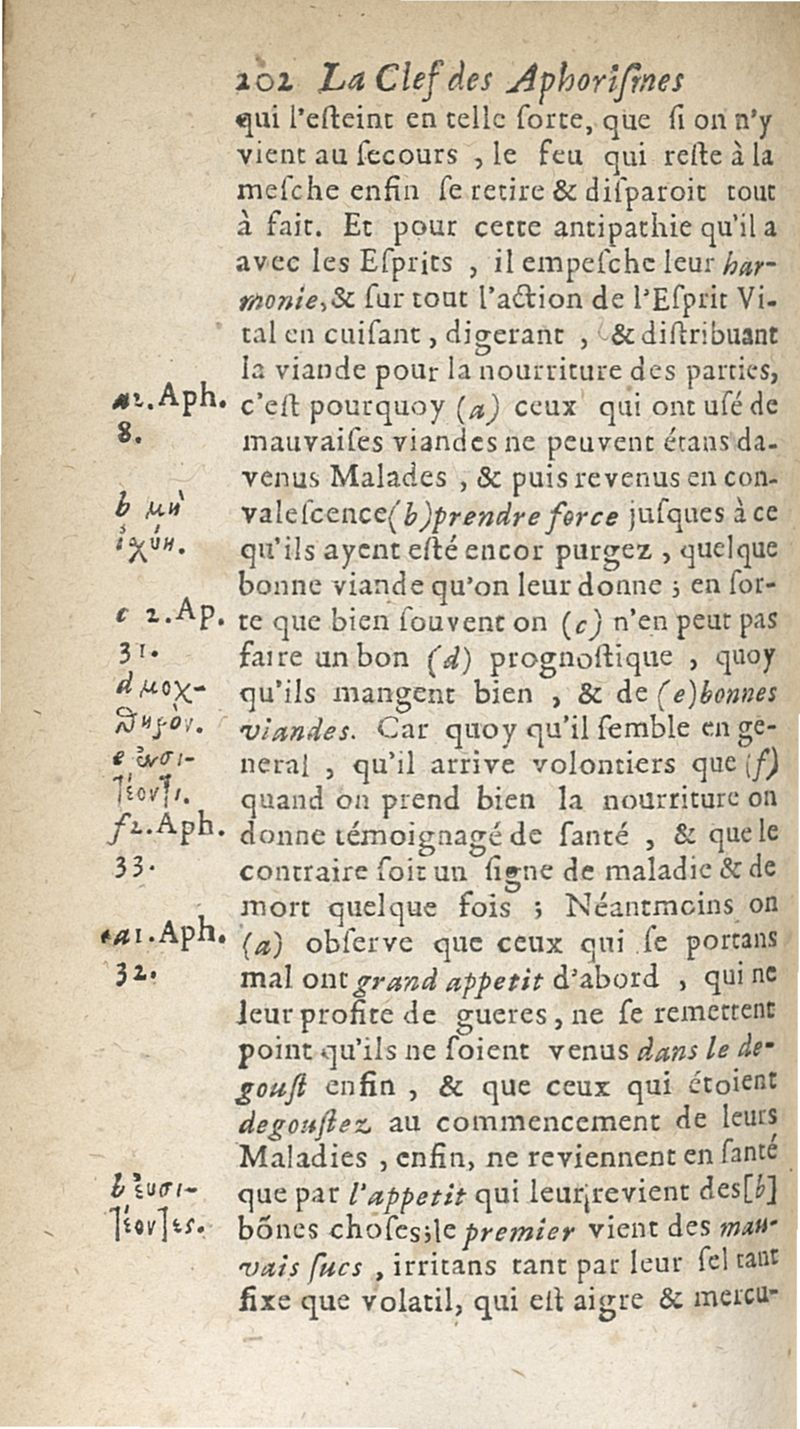 202 La Clef des Aphoriſmes
qui l'eſteint en telle ſorte, que ſi on n'y
vient au ſecours , le feu qui reſte à la
meſche enfin ſe retire & diſparoit tout
à fait. Et pour cette antipathie qu'il a
avec les Eſprits , il empeſche leur har-
monie, & ſur tout l'action de l'Eſprit Vi-
tal en cuiſant , digerant , & diſtribuant
la viande pour la nourriture des parties,
c'eſt pourquoy (a) ceux qui ont uſé de
mauvaiſes viandes ne peuvent étans da-
venus Malades , & puis revenus en con-
valeſcence (b) prendre force juſques à ce
qu'ils ayent eſté encor purgez , quelque
bonne viande qu'on leur donne ; en ſor-
te que bien ſouvent on (c) n'en peut pas
faire un bon (d) prognoſtique , quoy
qu'ils mangent bien , & de (e) bonnes
viandes. Car quoy qu'il ſemble en ge-
neral , qu'il arrive volontiers que (f)
quand on prend bien la nourriture on
donne témoignagé de ſanté , & que le
contraire ſoit un ſigne de maladie & de
mort quelque fois ; Néantmoins on
(a) obſerve que ceux qui ſe portans
mal ont grand appetit d'abord , qui ne
leur profite de gueres , ne ſe remettent
point qu'ils ne ſoient venus dans le de-
gouſt enfin , & que ceux qui étoient
degouſtez au commencement de leurs
Maladies , enfin, ne reviennent en ſanté
que par l'appetit qui leur revient des [b]
bõnes choſes ; le premier vient des mau-
vais ſucs , irritans tant par leur ſel tant
fixe que volatil, qui eſt aigre & mercu-
a 2. Aph.
8.
b μὴ
ἰχύη.
c 2. Ap.
31.
d μοχ-
θηρὸν.
f 2. Aph.
33.
a 1. Aph.
32.